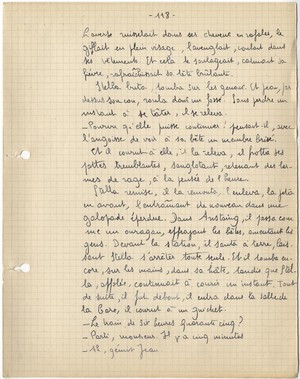 - 118 -
L'averse ruisselait dans ses cheveux en rafales, le
giflait en plein visage, l'aveuglait, coulant dans
ses vêtements. Et cela le soulageait, calmait sa
fièvre, rafraîchissait sa tête brûlante.
Stella buta, tomba sur les genoux. Et Jean, par
dessus son cou, roula dans un fossé. Sans perdre un
instant à se tâter, il se releva.
- Pourvu qu'elle puisse continuer ! pensait-il, avec
l'angoisse de voir à sa bête un membre brisé.
Et il courut à elle, il la releva, il frotta ses
pattes tremblantes, sanglotant, versant des lar-
mes de rage, à la pensée de l'heure.
Stella remise, il la remonta, l'enleva, la jeta
en avant, l'entraînant de nouveau dans une
galopade éperdue. Dans Anstaing, il passa com-
me un ouragan, effrayant les bêtes, ameutant les
gens. Devant la station, il sauta à terre, lais-
sant Stella s'arrêter toute seule. Et il tomba en-
core, sur les mains, dans sa hâte, tandis que Stel-
la, affolée, continuait à courir un instant. Tout
de suite, il fut debout, il entra dans la salle de
la gare, il courut à un guichet.
- Le train de six heures quarante cinq ?
- Parti, monsieur. Il y a cinq minutes
- gémit Jean